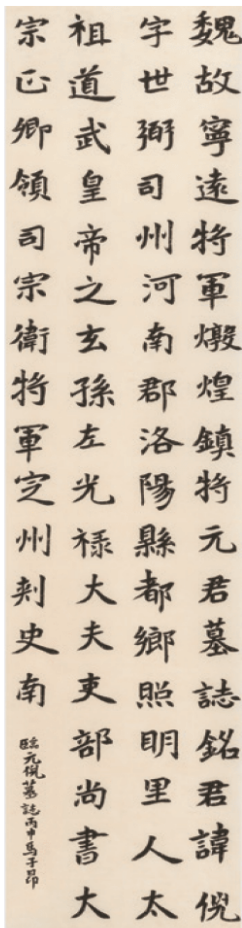 魏故寧遠將軍燉煌鎮將元君墓誌銘君諱倪
字世弼司州河南郡洛陽縣都鄉照明里人太
祖道武皇帝之玄孫左光祿大夫吏部尚書大
宗正卿領司宗衛將軍定州刺史南
臨元倪墓誌丙申馬子昂